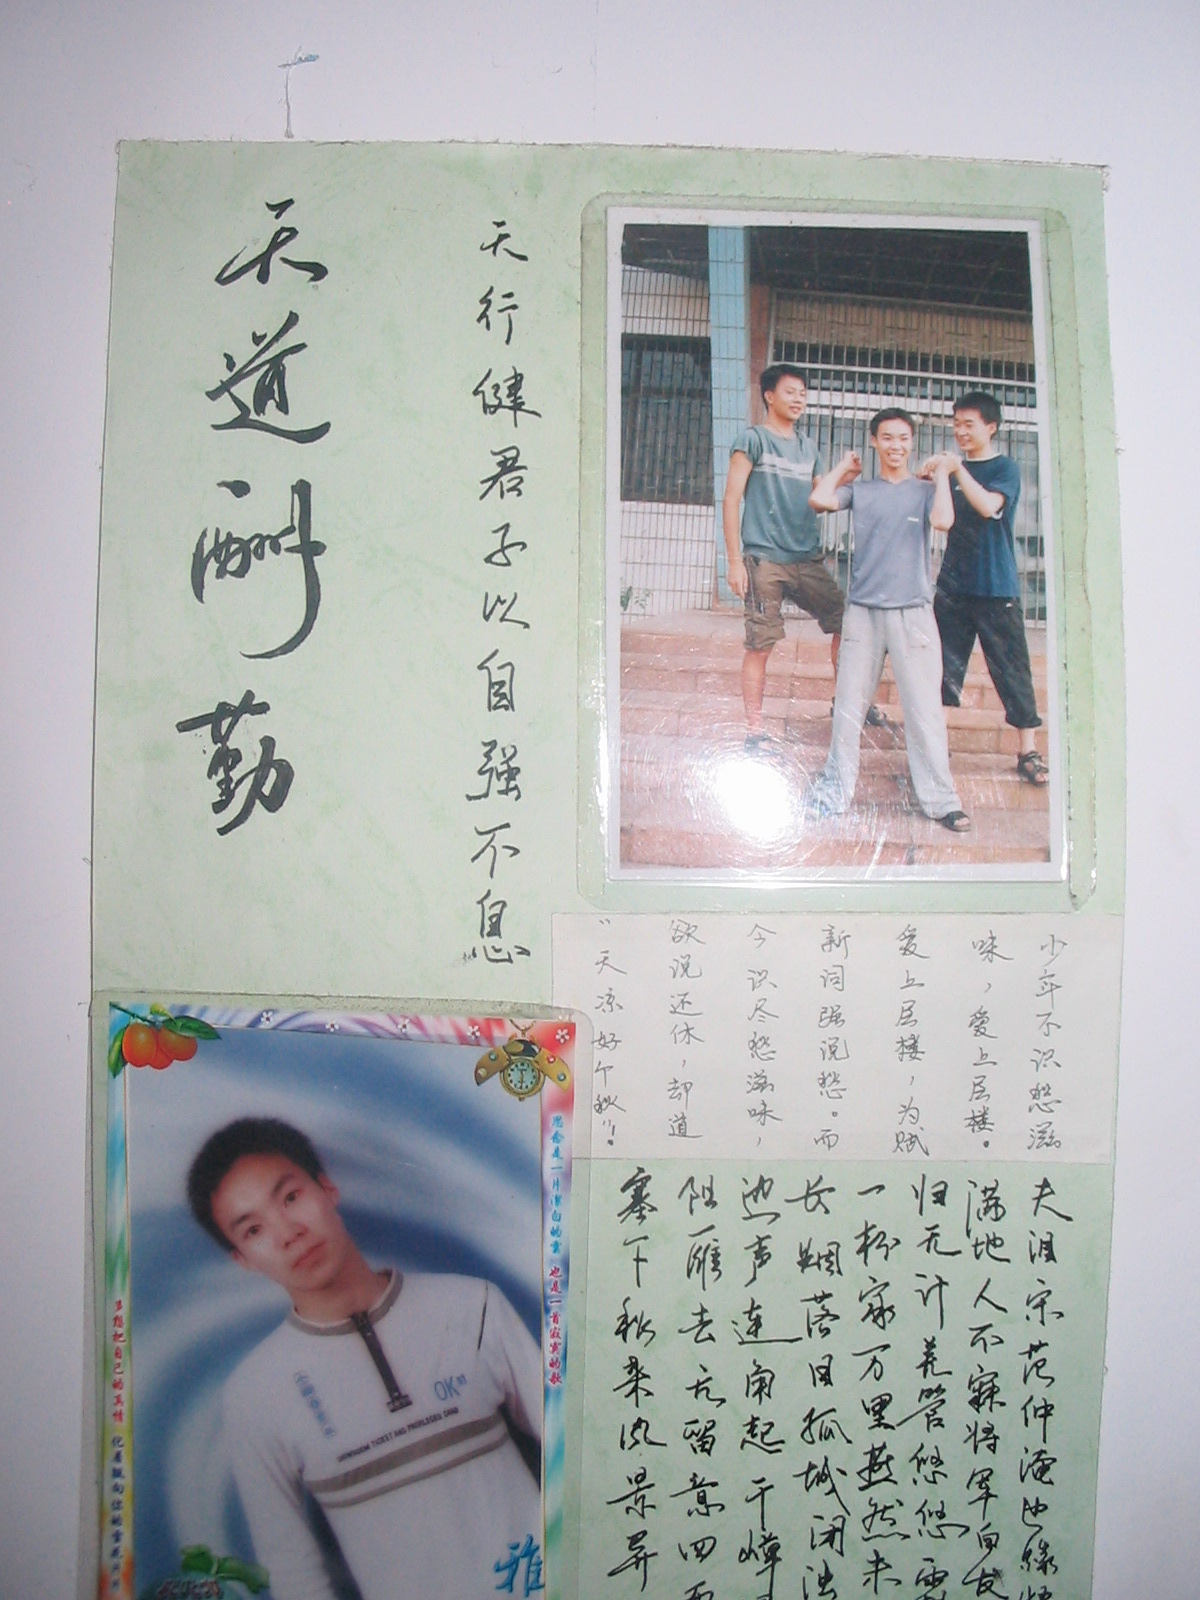 天道酬勤
天行健君子以自强不息
少年不识愁滋
味，爱上层楼。
爱上层楼，为赋
新词强说愁。而
今识尽愁滋味，
欲说还休，却道
“天凉好个秋”！
塞下秋来风景异
阳雁去无留意四面
边声连角起千嶂
长烟落日孤城闭浊
一杯家万里燕然未
归无计羌管悠悠霜
满地人不寐将军白发
夫泪宋范仲淹
思念是一片洁白的云 也是一首寂寞的歌
多想把自己的真情 化着飘向你的雪花
OK
雅